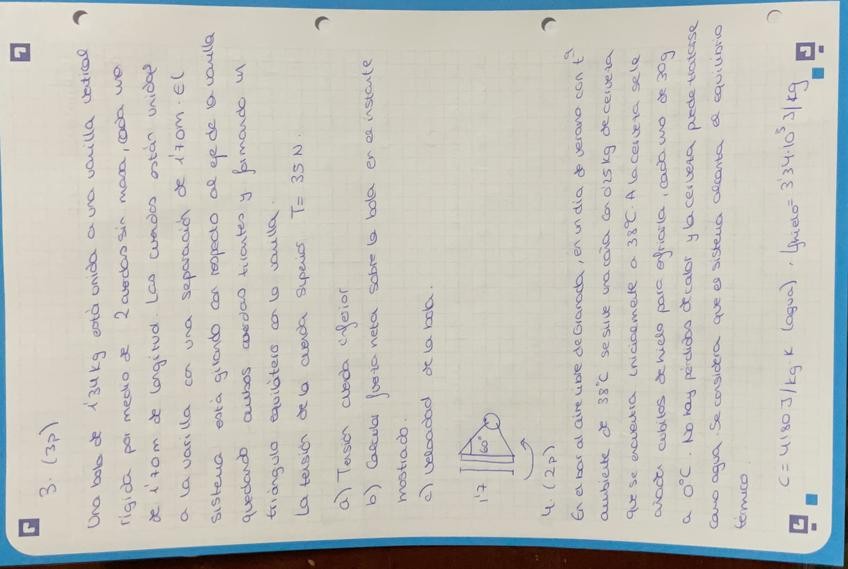 3. (3p)
Una bola de 1'34 kg está unida a una varilla vertical
rígida por medio de 2 cuerdas sin masa, cada una
de 1'70m de longitud. Las cuerdas están unidas
a la varilla con una separación de 1'70m. El
sistema está girando con respecto al eje de la varilla
quedando ambas cuerdas tirantes y formando un
triángulo equilátero con la varilla.
La tensión de la cuerda superior T = 35 N.
a) Tensión cuerda inferior
b) Calcular fuerza neta sobre la bola en el instante
mostrado.
c) Velocidad de la bola.
1'7
60°
4. (2p)
En el bar al aire libre de Granada, en un día de verano con tª
ambiente de 38°C se sirve una caña con 0'25 kg de cerveza
que se encuentra inicialmente a 38°C. A la cerveza se le
añade cubitos de hielo para enfriarla, cada uno de 30g
a 0°C. No hay pérdidas de calor y la cerveza puede tratarse
como agua. Se considera que el sistema alcanza el equilibrio
térmico.
C = 4180 J/kg·K (agua), Lfhielo = 334·10³ J/kg